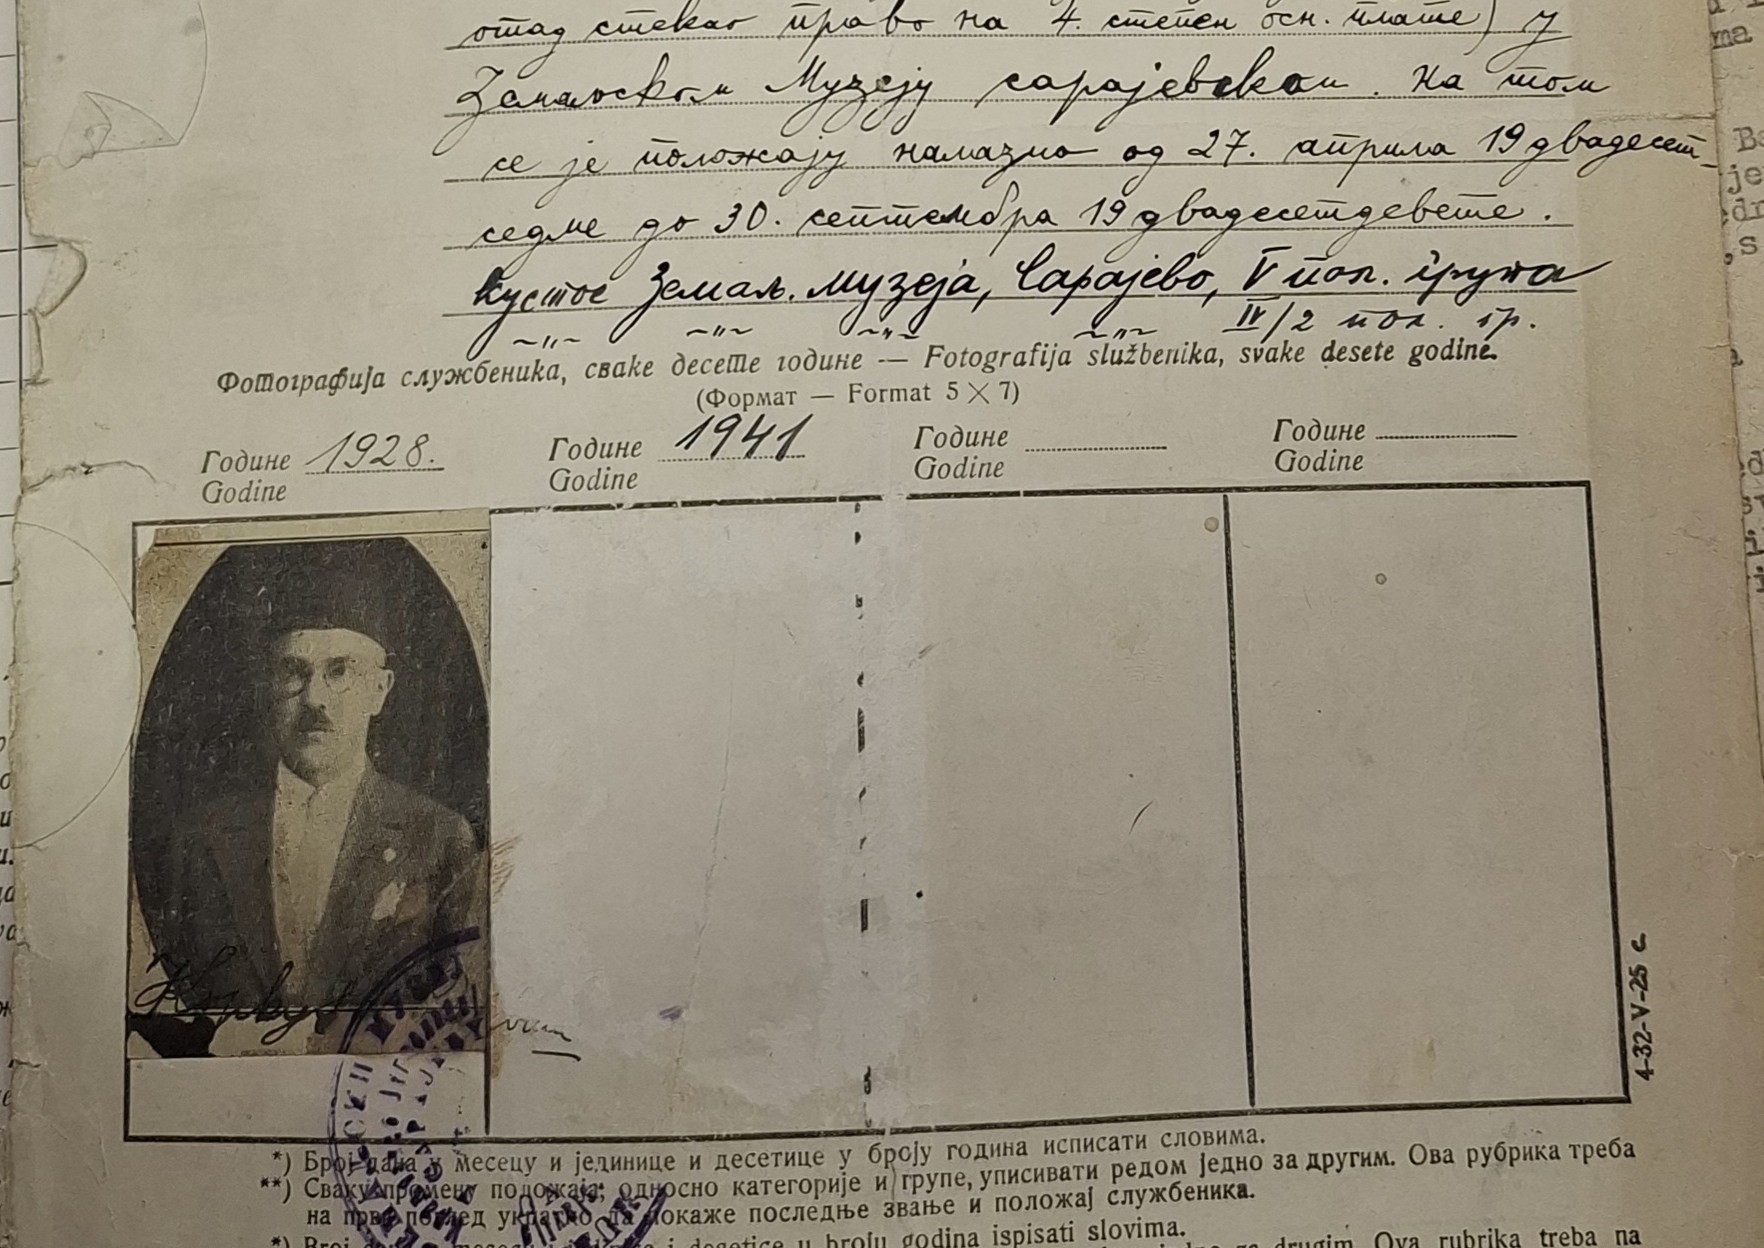 отад стекао право на 4. степен осн. плате) у
Земаљском Музеју сарајевском. На том
се је положају налазио од 27. априла 19 двадесет-
седме до 30. септембра 19 двадесетдевете.
Кустос Земаљ. музеја, Сарајево, V пол. група
—"— —"— —"— —"— IV/2 пол. гр.
Фотографија службеника, сваке десете године — Fotografija službenika, svake desete godine.
(Формат — Format 5 × 7)
Године 1928. Године 1941 Године Године
Godine Godine Godine Godine
4-32-V-25 с
*) Број дана у месецу и јединице и десетице у броју година исписати словима.
**) Сваку промену положаја, односно категорије и групе, уписивати редом једно за другим. Ова рубрика треба
на први поглед укратко да покаже последње звање и положај службеника.
*) Broj i desetice u broju godina ispisati slovima.
za drugim. Ova rubrika treba na